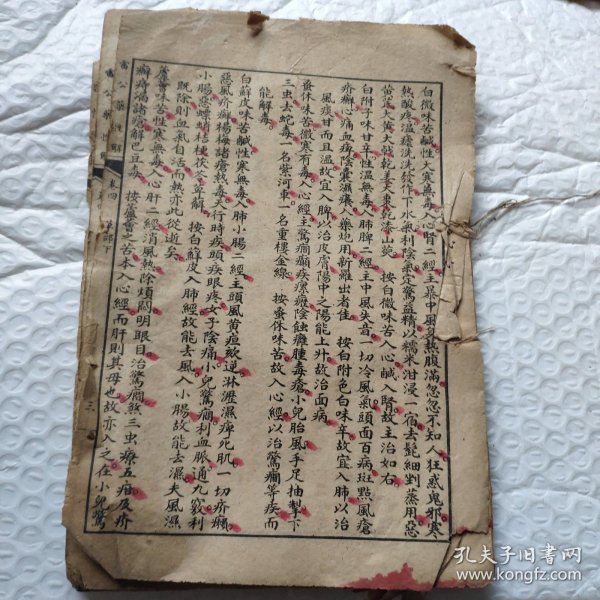 白微味苦鹹性大寒無毒入心腎二經主暴中風身熱腹滿忽忽不知人狂惑鬼邪寒
熱酸疼溫瘧洗洗發作下水氣利陰氣定驚益精以糯米泔浸一宿去髭細剉蒸用惡
黃芪大黃大戟乾姜大棗乾漆山茱 按白微味苦入心鹹入腎故主治如右
白附子味甘辛性溫無毒入肺脾二經主中風失音一切冷風氣頭面百病斑點風瘡
疥癬心痛血痹陰囊濕癢入藥炮用新羅出者佳 按白附色白味辛故宜入肺以治
風痰甘而且溫故宜入脾以治皮膚陽中之陽能上升故治面病
蚤休味苦微寒有毒入心經主驚癇癲疾瘰癧陰蝕癰腫毒瘡小兒胎風手足抽掣下
三虫去蛇毒一名紫河車一名重樓金線 按蚤休味苦故入心經以治驚癇等疾而
能解毒
白蘚皮味苦鹹性寒無毒入肺小腸二經主頭風黃疸欬逆淋瀝濕痺死肌一切疥癩
惡風疥癬楊梅諸瘡熱毒天行時疾頭疾眼疼女子陰痛小兒驚癇利血脈通九竅利
小腸惡螵蛸桔梗茯苓萆薢 按白蘚皮入肺經故能去風入小腸故能去濕夫風濕
既除則血氣自活而熱亦此從逝矣
蘆薈味苦性寒無毒入心肝二經消風熱除煩悶明眼目治驚癇殺三虫療五疳及疥
癬痔漏諸瘡解巴豆毒 按蘆薈之苦本入心經而肝則其母也故亦入之在小兒驚
雷公藥性解 卷四 草部下
三
雷公藥性
孔夫子旧书网
www.kongfz.com